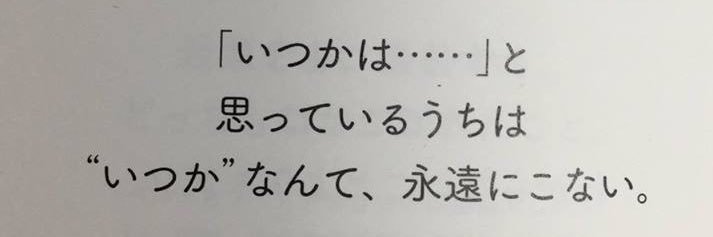 「いつかは……」と
思っているうちは
“いつか”なんて、永遠にこない。